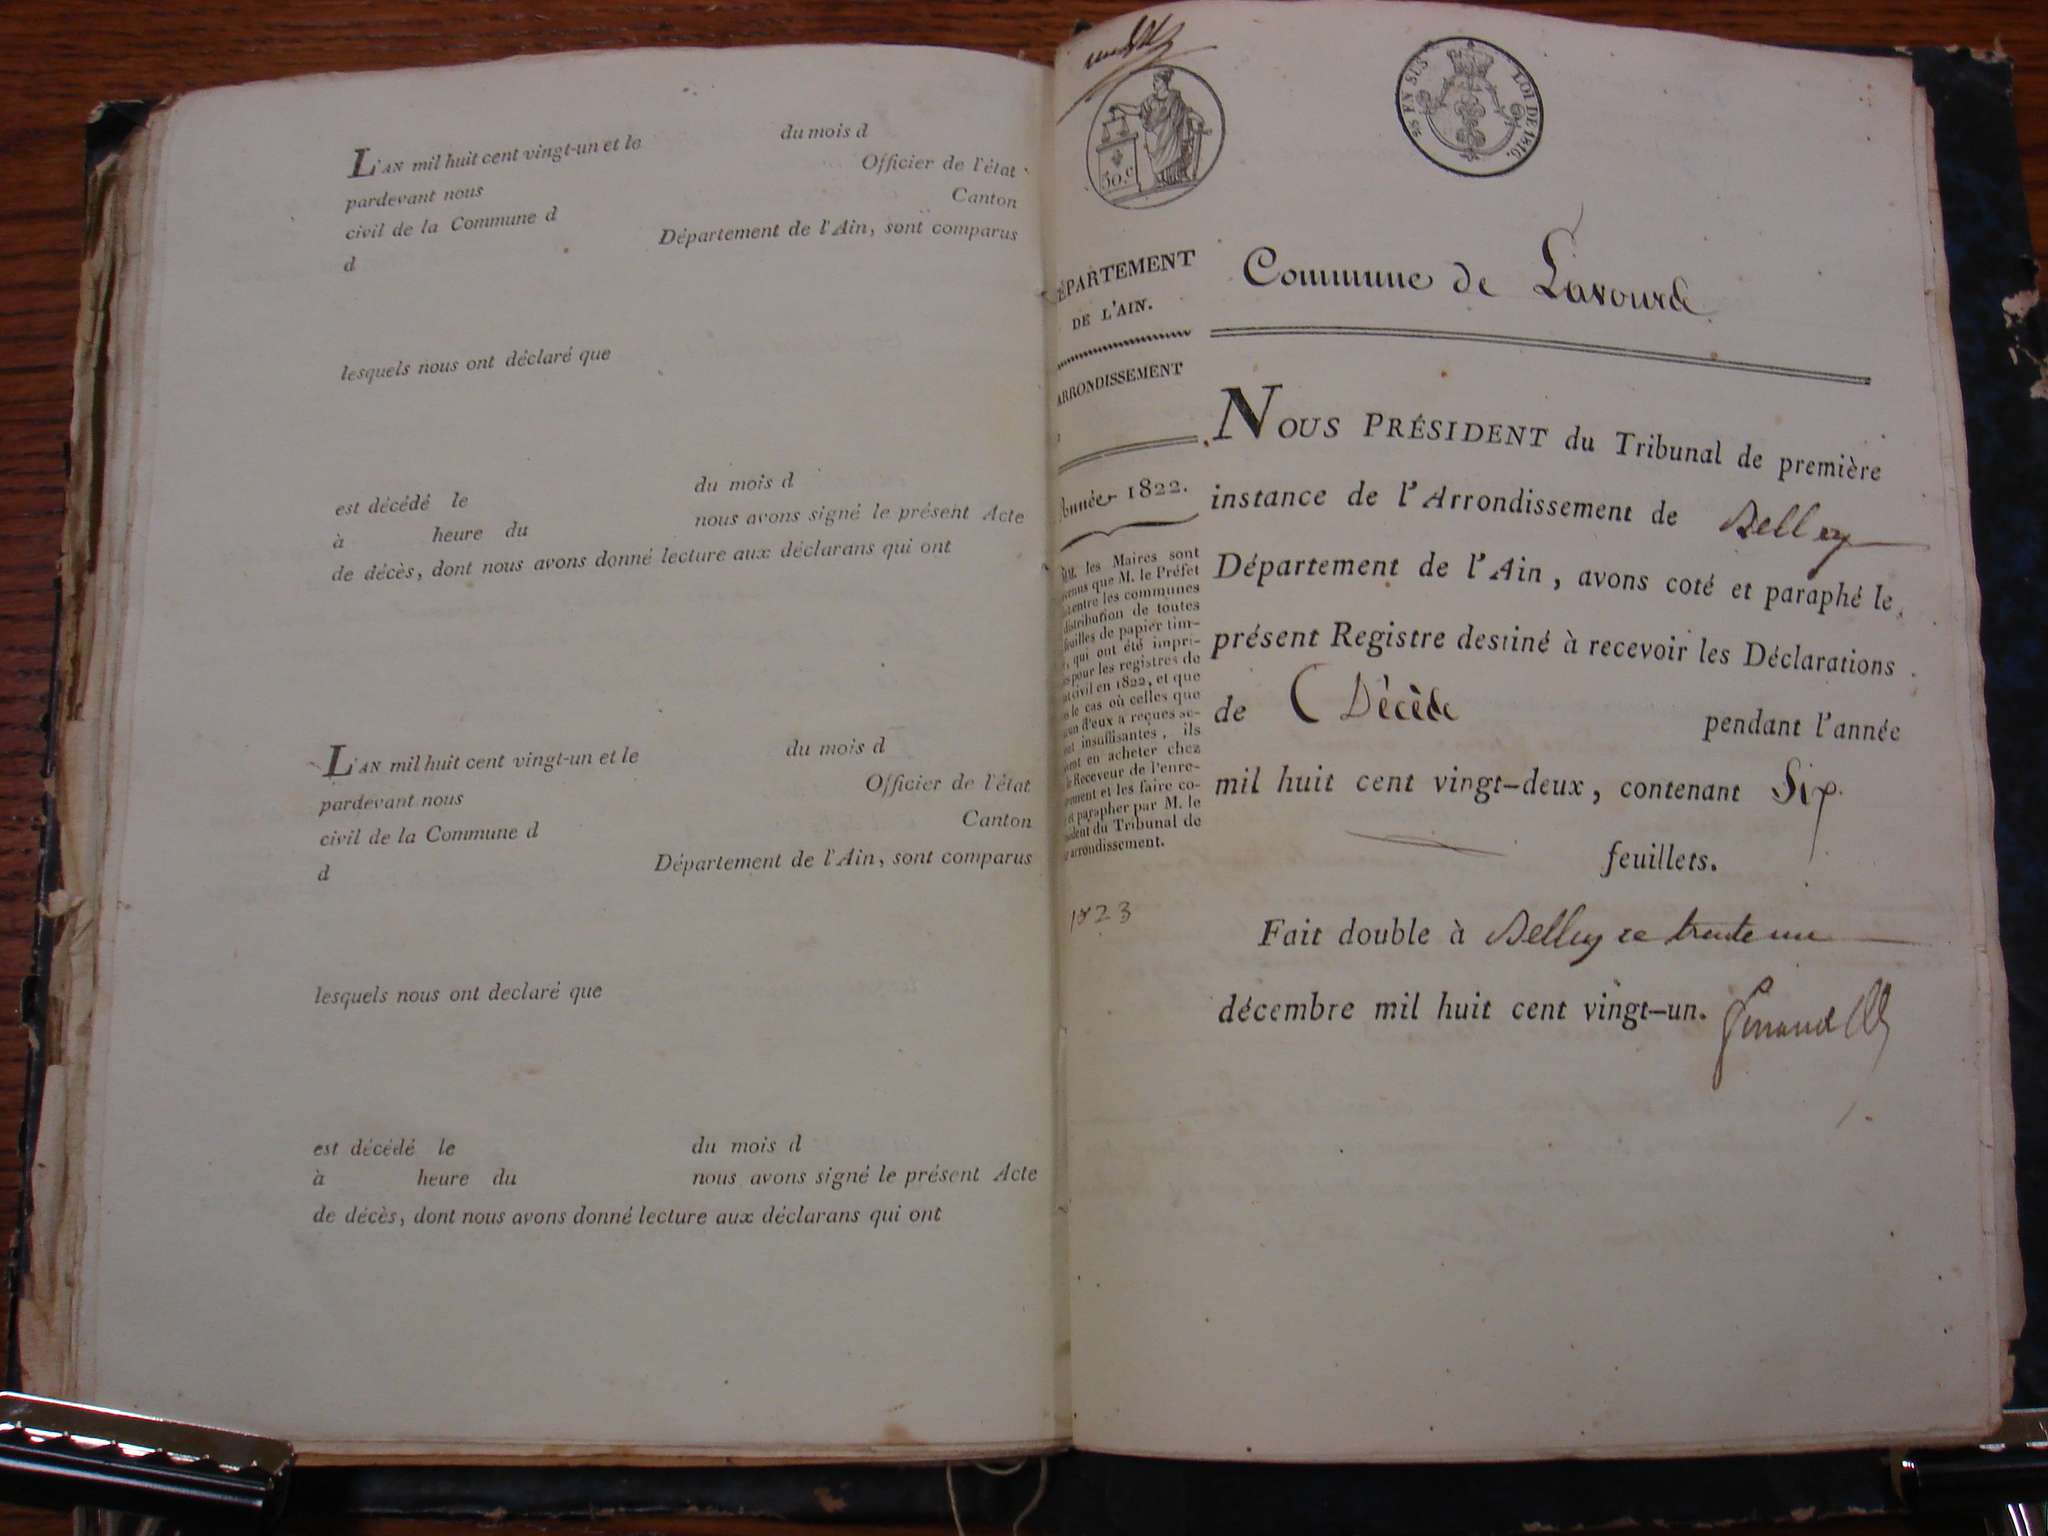 L'AN mil huit cent vingt-un et le du mois d
pardevant nous Officier de l'état
civil de la Commune d Canton
d Département de l'Ain, sont comparus
lesquels nous ont déclaré que
est décédé le du mois d
à heure du nous avons signé le présent Acte
de décès, dont nous avons donné lecture aux déclarans qui ont
L'AN mil huit cent vingt-un et le du mois d
pardevant nous Officier de l'état
civil de la Commune d Canton
d Département de l'Ain, sont comparus
lesquels nous ont declaré que
est décédé le du mois d
à heure du nous avons signé le présent Acte
de décès, dont nous avons donné lecture aux déclarans qui ont
50.c
EN SUS LOI DE 1816.
ÉPARTEMENT
DE L'AIN.
ARRONDISSEMENT
Année 1822.
MM. les Maires sont
venus que M. le Préfet
entre les communes
distribution de toutes
feuilles de papier tim-
qui ont été impri-
pour les registres de
civil en 1822, et que
le cas où celles que
d'eux a reçues se-
insuffisantes, ils
en acheter chez
Receveur de l'enre-
et les faire co-
et parapher par M. le
du Tribunal de
arrondissement.
1823
Commune de Lavourd
NOUS PRÉSIDENT du Tribunal de première
instance de l'Arrondissement de Belley
Département de l'Ain, avons coté et paraphé le
présent Registre destiné à recevoir les Déclarations
de Décède pendant l'année
mil huit cent vingt-deux, contenant Six
feuillets.
Fait double à Belley ce trente un
décembre mil huit cent vingt-un.